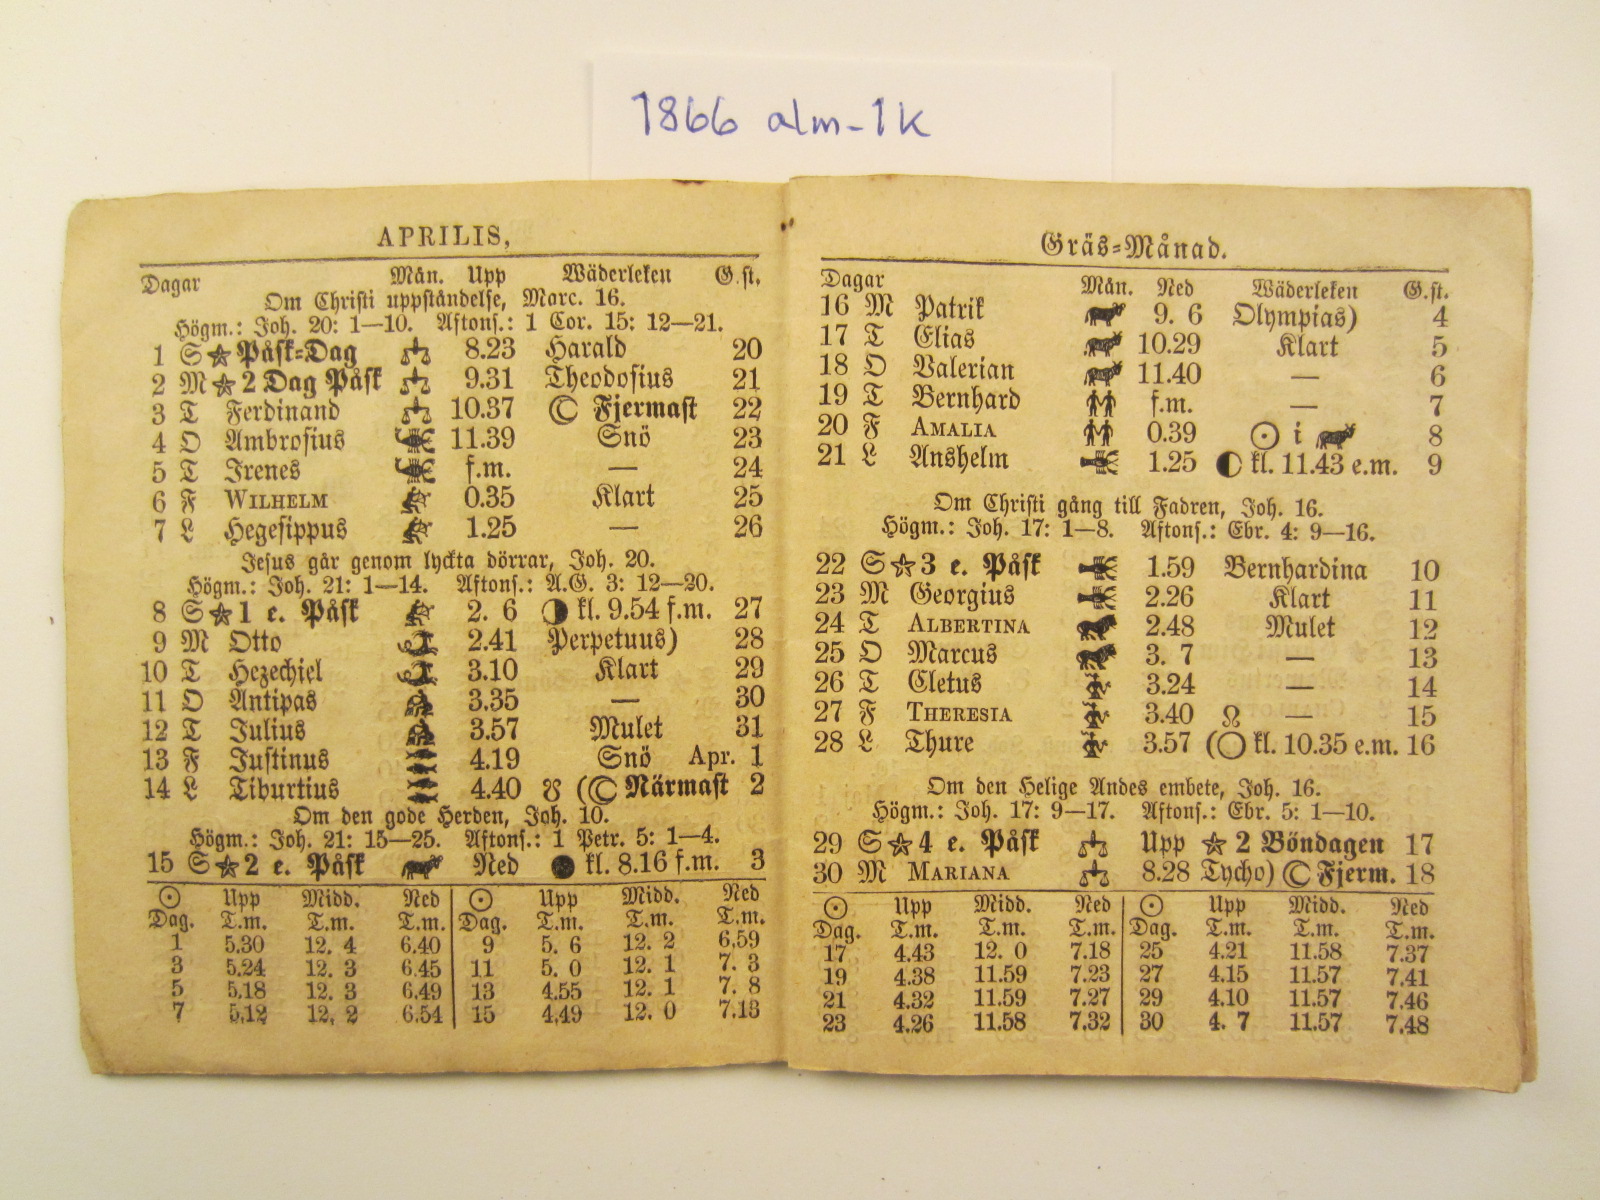 1866 alm-1k
APRILIS,
Dagar Mån. Upp Wäderleken G.st.
Om Christi uppståndelse, Marc. 16.
Högm.: Joh. 20: 1—10. Aftons.: 1 Cor. 15: 12—21.
1 S ★ Påsk-Dag 8.23 Harald 20
2 M ★ 2 Dag Påsk 9.31 Theodosius 21
3 T Ferdinand 10.37 ☾ Fjermast 22
4 O Ambrosius 11.39 Snö 23
5 T Irenes f.m. — 24
6 F WILHELM 0.35 Klart 25
7 L Hegesippus 1.25 — 26
Jesus går genom lyckta dörrar, Joh. 20.
Högm.: Joh. 21: 1—14. Aftons.: A.G. 3: 12—20.
8 S ★ 1 e. Påsk 2. 6 ◑ kl. 9.54 f.m. 27
9 M Otto 2.41 Perpetuus) 28
10 T Hezechiel 3.10 Klart 29
11 O Antipas 3.35 — 30
12 T Julius 3.57 Mulet 31
13 F Justinus 4.19 Snö Apr. 1
14 L Tiburtius 4.40 ☋ (☾ Närmast 2
Om den gode Herden, Joh. 10.
Högm.: Joh. 21: 15—25. Aftons.: 1 Petr. 5: 1—4.
15 S ★ 2 e. Påsk Ned ● kl. 8.16 f.m. 3
☉ Upp Midd. Ned ☉ Upp Midd. Ned
Dag. T.m. T.m. T.m. Dag. T.m. T.m. T.m.
1 5.30 12. 4 6.40 9 5. 6 12. 2 6.59
3 5.24 12. 3 6.45 11 5. 0 12. 1 7. 3
5 5.18 12. 3 6.49 13 4.55 12. 1 7. 8
7 5.12 12. 2 6.54 15 4.49 12. 0 7.13
Gräs-Månad.
Dagar Mån. Ned Wäderleken G.st.
16 M Patrik 9. 6 Olympias) 4
17 T Elias 10.29 Klart 5
18 O Valerian 11.40 — 6
19 T Bernhard f.m. — 7
20 F AMALIA 0.39 ☉ i 8
21 L Anshelm 1.25 ◐ kl. 11.43 e.m. 9
Om Christi gång till Fadren, Joh. 16.
Högm.: Joh. 17: 1—8. Aftons.: Ebr. 4: 9—16.
22 S ★ 3 e. Påsk 1.59 Bernhardina 10
23 M Georgius 2.26 Klart 11
24 T ALBERTINA 2.48 Mulet 12
25 O Marcus 3. 7 — 13
26 T Cletus 3.24 — 14
27 F THERESIA 3.40 ☊ — 15
28 L Thure 3.57 (○ kl. 10.35 e.m. 16
Om den Helige Andes embete, Joh. 16.
Högm.: Joh. 17: 9—17. Aftons.: Ebr. 5: 1—10.
29 S ★ 4 e. Påsk Upp ★ 2 Böndagen 17
30 M MARIANA 8.28 Tycho) ☾ Fjerm. 18
☉ Upp Midd. Ned ☉ Upp Midd. Ned
Dag. T.m. T.m. T.m. Dag. T.m. T.m. T.m.
17 4.43 12. 0 7.18 25 4.21 11.58 7.37
19 4.38 11.59 7.23 27 4.15 11.57 7.41
21 4.32 11.59 7.27 29 4.10 11.57 7.46
23 4.26 11.58 7.32 30 4. 7 11.57 7.48